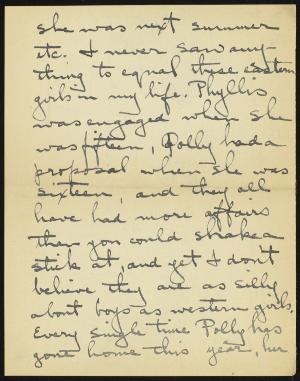 she was next summer
etc. I never saw any-
thing to equal these eastern
girls in my life. Phyllis
was engaged when she
was fifteen, Polly had a
proposal when she was
sixteen, and they all
have had more affairs
than you could shake a
stick at, and yet I don't
believe they are as silly
about boys as western girls.
Every single time Polly has
gone home this year, her